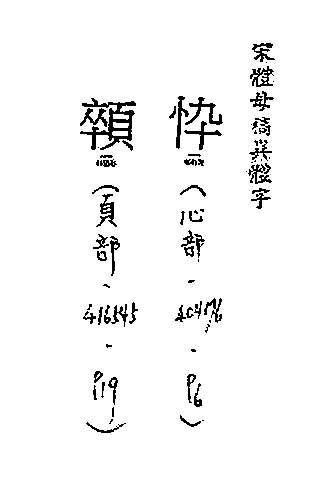 宋體母稿異體字
忰
(心部-
-P6)
(頁部-416545-P19)